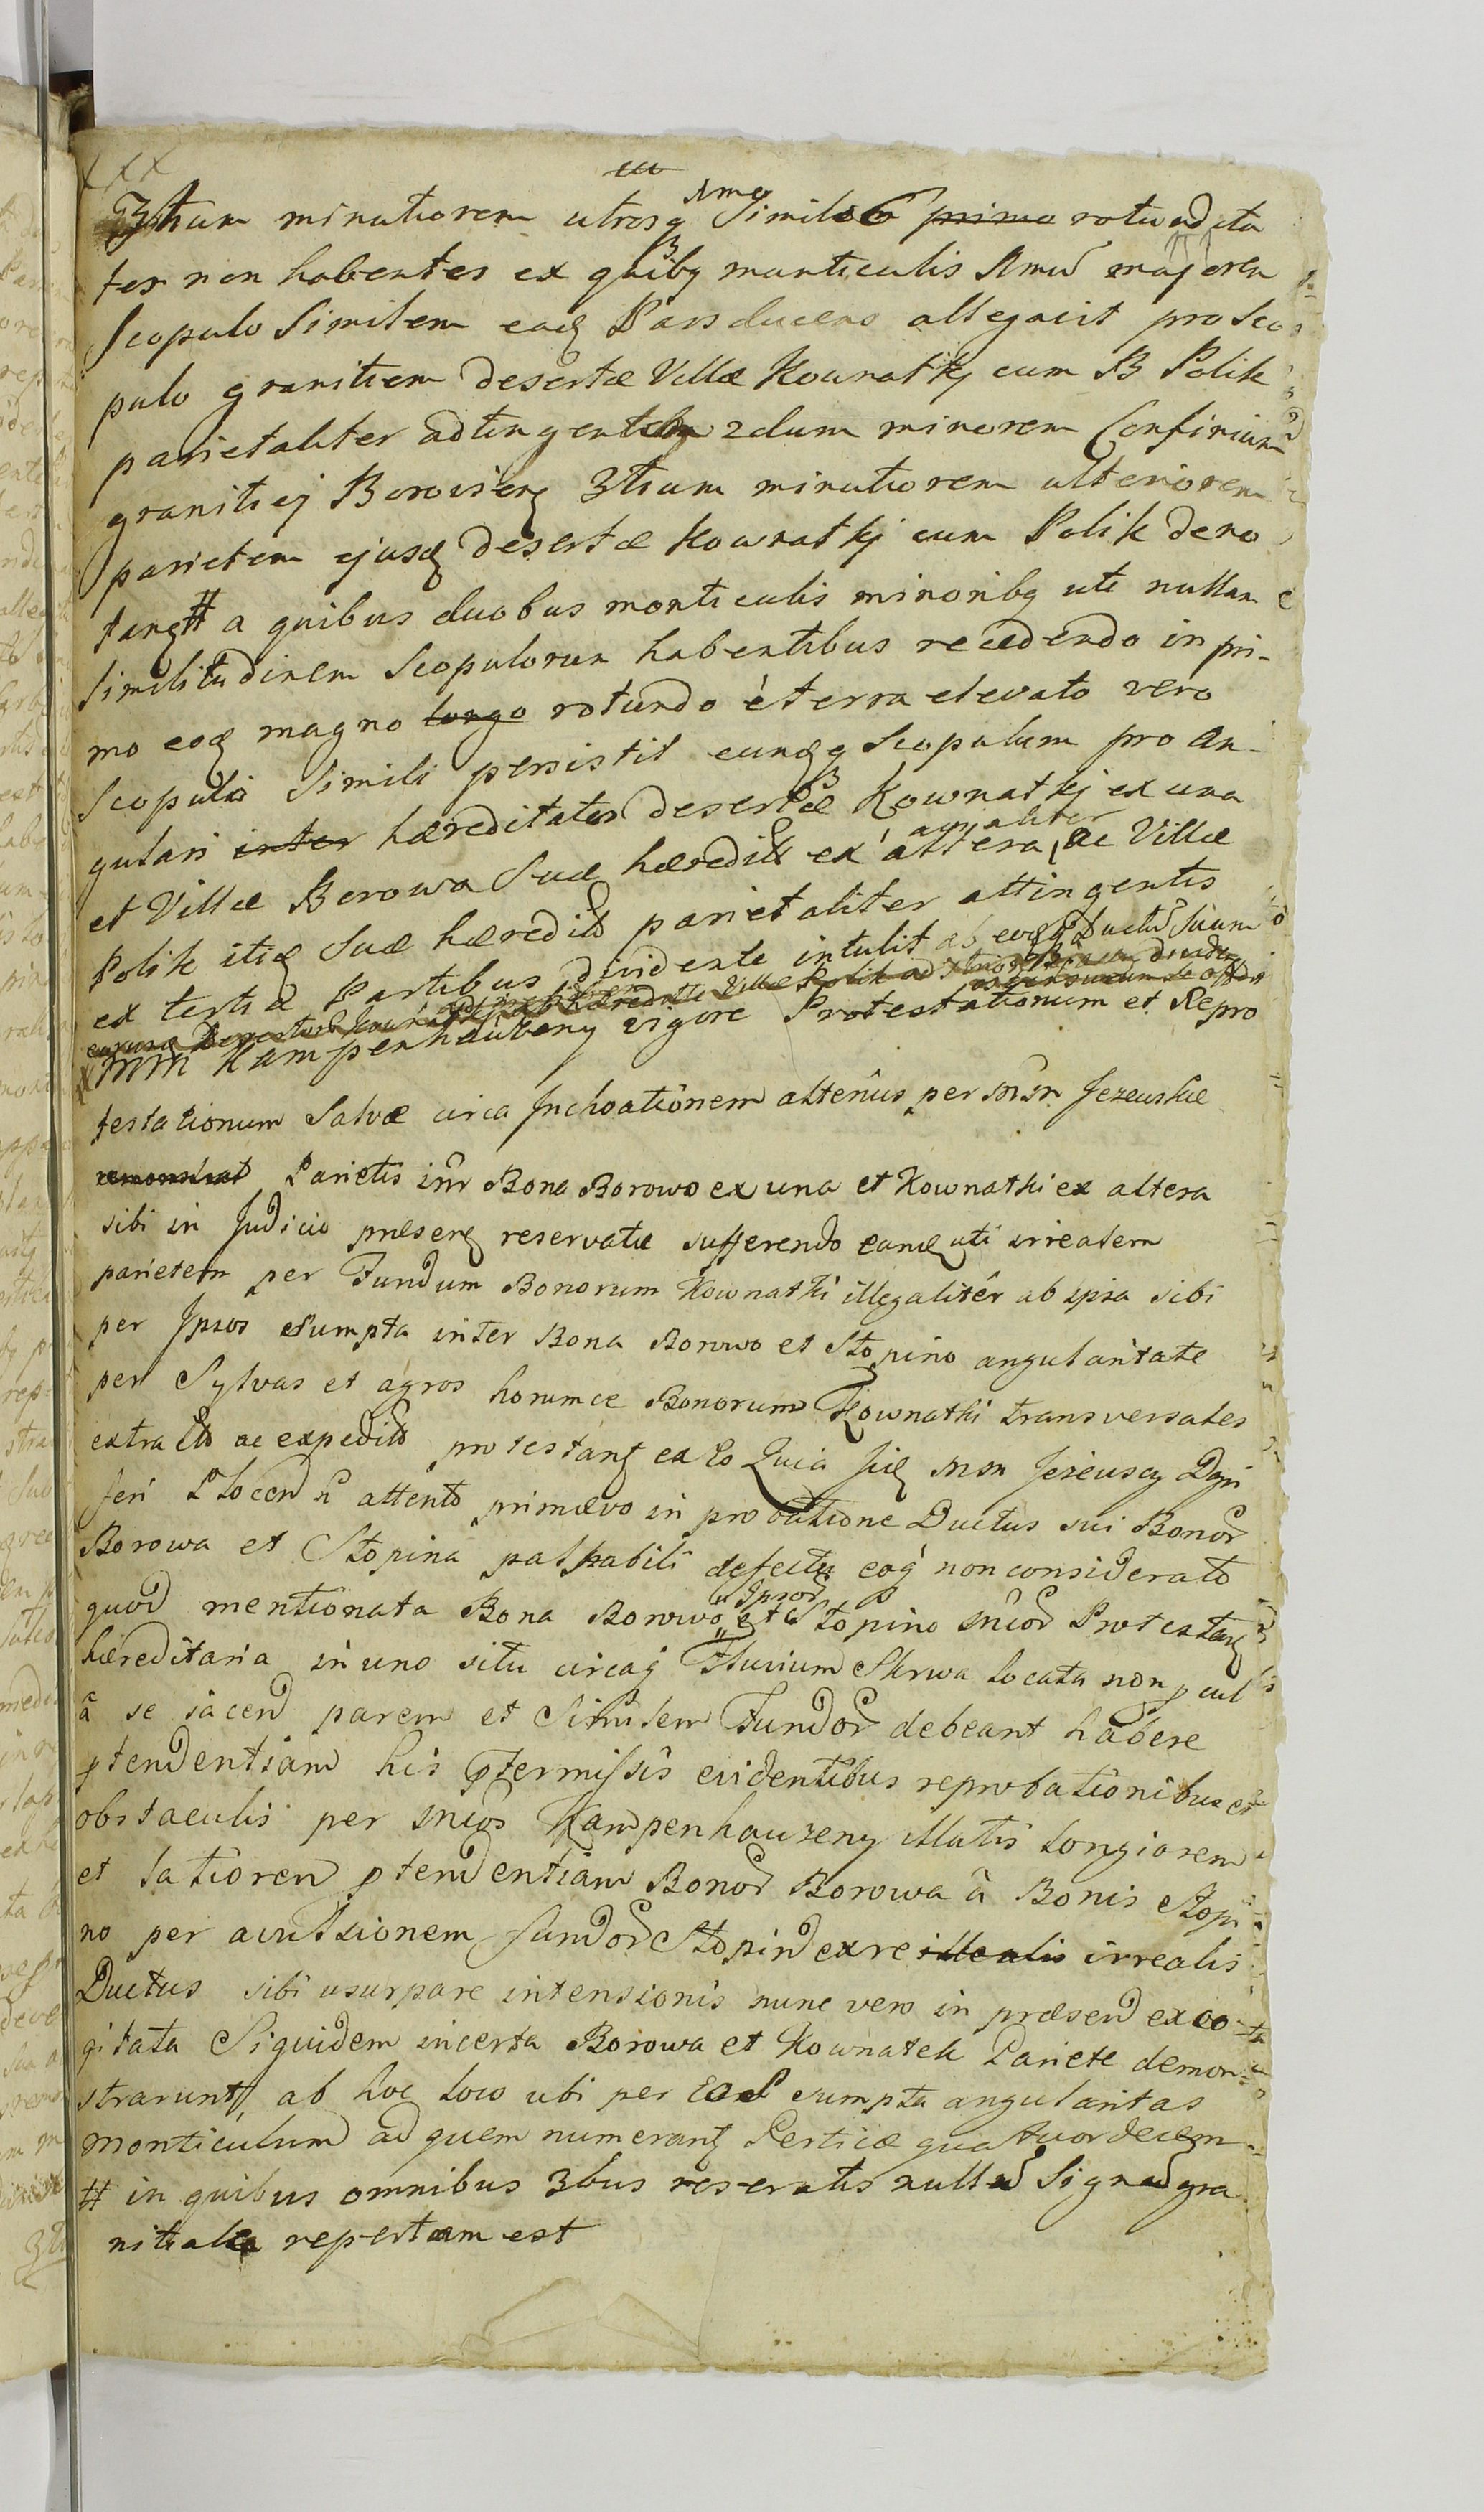 xxx
3tium minutiorem utrosq 1mo Simile 6 primo rotundita
tes non habentes ex quibq 3 monticulis 1mũ majorem
Scopulo Similem eadꝫ Pars ducens allegavit pro Sco
pulo granitiem desertæ Villæ Kownatkj cum B Polik
parietaliter adtingentem 2dum minorem Confinium
granitiej Borowien 3tium minutiorem ulteriorem
parietem ejusdꝫ desertæ Kownatkj cum Polik deno
tanꝫ # a quibus duobus monticulis minoribq uti nullam
similitudinem Scopulorum habentibus recedendo in pri-
mo eodꝫ magno longo rotundo è terra elevato vero
Scopulo Simili persistit eundꝫq Scopulum pro an-
gulari inter hæreditates 3 desertæ Kownatkj ex una
et Villæ Borowa Suæ hæredit ex altera, ac Villæ
Polik itidꝫ Suæ hæredit parietaliter attingentis
ex tertia Partibus dividente intulit ab eodꝫ Ductũ Suum
MM Kampenhauzeny vigore Protestationum et Repro
testationum Salvæ circa Inchoationem altenus per Mm Jezewskie
remonstrat Parietis intr Bona Borowo ex una et Kownatki ex altera
sibi in Judicio præsenꝫ reservatæ sufferendo eandꝫ uti irrealem
parietem per Fundum Bonorum Kownatki illegalitêr ab ipsa sibi
per Ipsos esumpta inter Bona Borowo et Stopino angularitate
per Sylvas et agros horumce Bonorum Kownatki transversales
extracto ac expedito protestanꝫ ex Eo Quia Iidꝫ Mm Jezewscy Dgni
feri Płocen n attento primævo in probatione Ductus sui Bonor
Borowa et Stopina palpabili defectu eoq non considerato
quod mentionata Bona Borowo et Stopino Ipsor Mcor Protestanꝫ
hæreditaria in uno situ circaq Fluvium Skrwa locata non pcul
â se jacen parem et Similem Fundor debeant habere
ptendentiam his ptermissis evidentibus reprobationibus et
obstaculis per Mcos Kampenhauzeny illatis longiorem
et latiorem ptendentiam Bonor Borowa â Bonis Stopi
no per avulsionem Fundor Stopin ex re illealis irrealis
Ductus sibi usurpare intensionis nunc vero in præsen exco
gitata Siquidem incerta Borowa et Kownatek Pariete demon
strarunt, ab hoc loco ubi per Eos sumpta angularitas
monticulum ad quem numeranꝫ Perticæ quatuordecem
# in quibus omnibus 3bus reseratis nullũ Signũ gra
nitiale repertum est